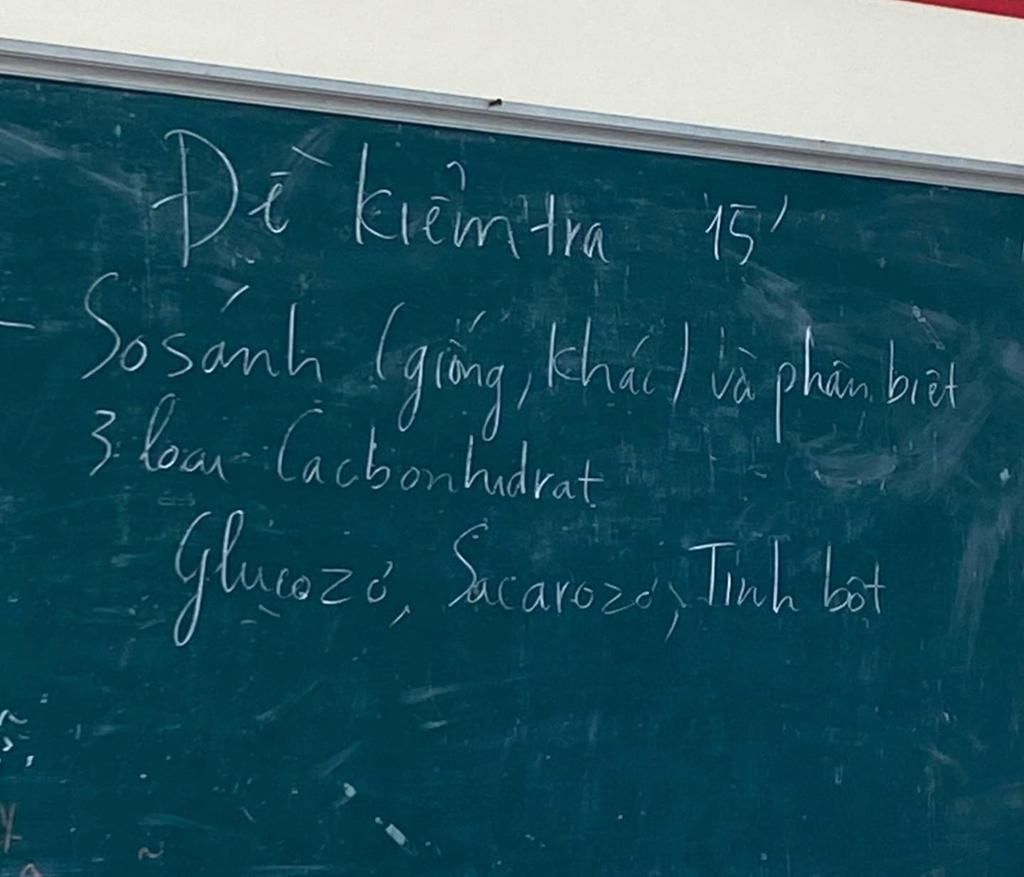 Đề kiểm tra 15'
- So sánh (giống, khác) và phân biệt
3 loại Cacbonhidrat
Glucozơ, Sacarozơ, Tinh bột